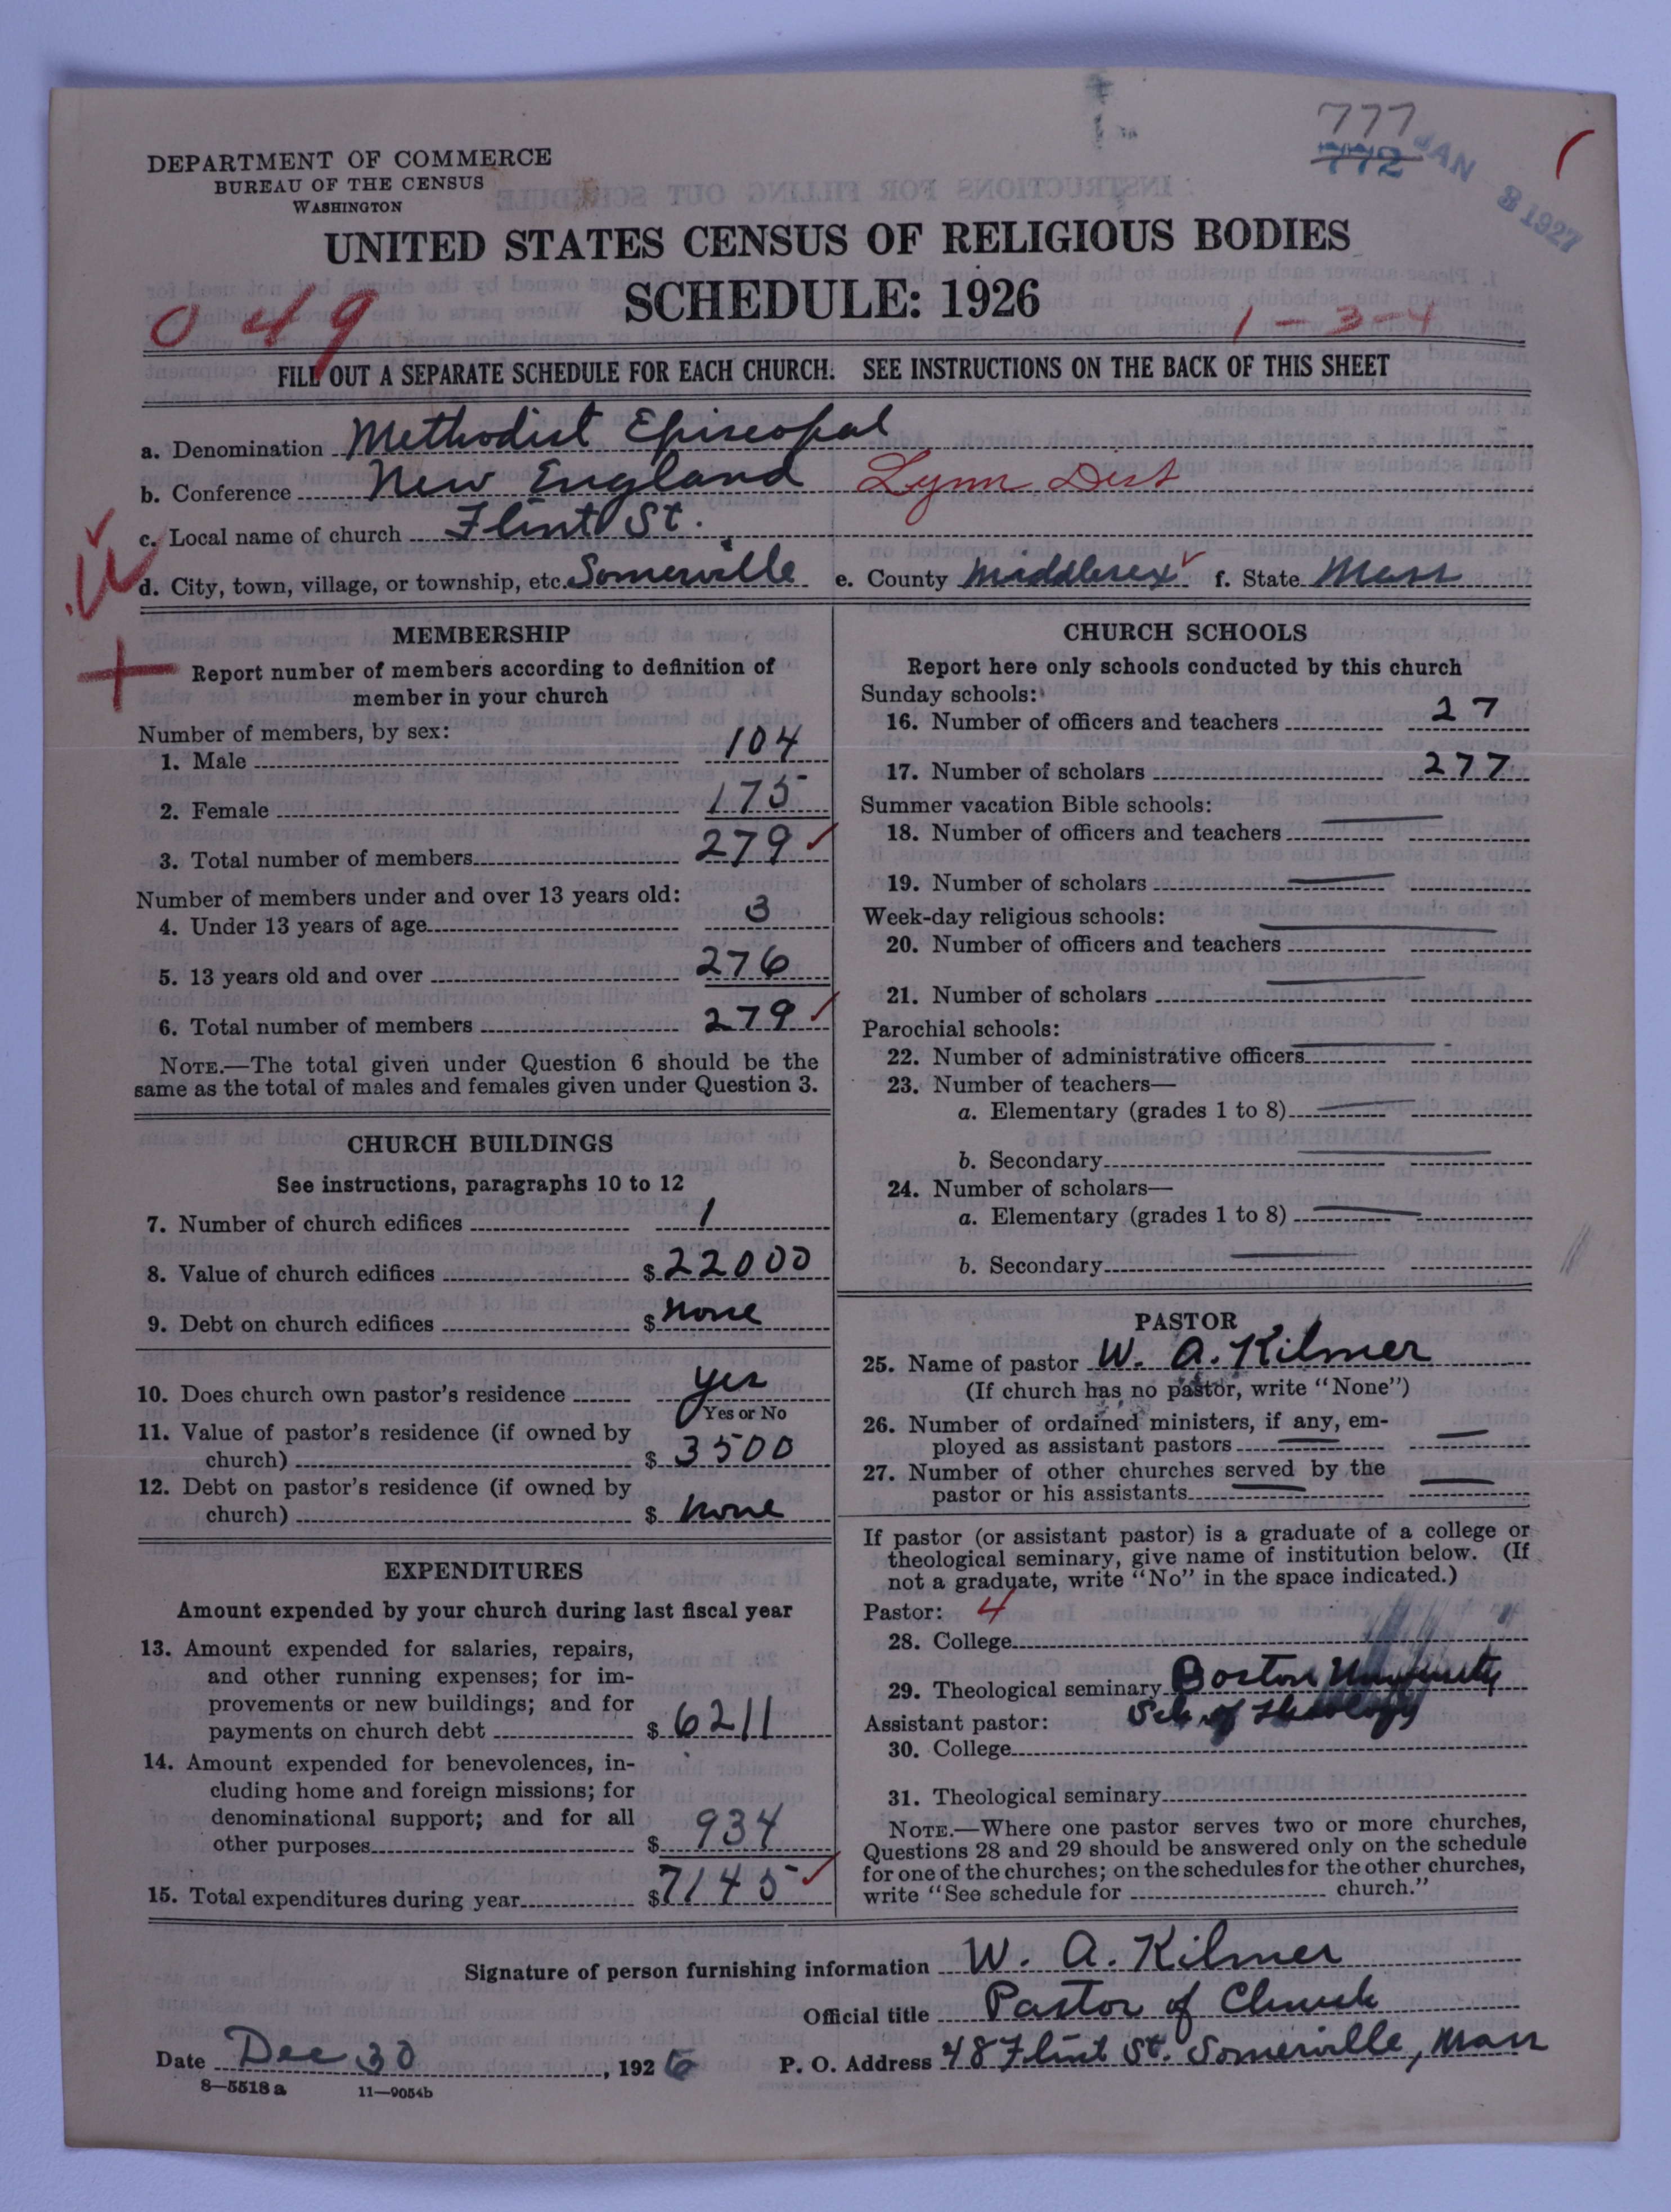 777
772
JAN 3 1927
DEPARTMENT OF COMMERCE
BUREAU OF THE CENSUS
WASHINGTON
UNITED STATES CENSUS OF RELIGIOUS BODIES
SCHEDULE: 1926
049
1-3-4
FILL OUT A SEPARATE SCHEDULE FOR EACH CHURCH. SEE INSTRUCTIONS ON THE BACK OF THIS SHEET
a. Denomination Methodist Episcopal
b. Conference New England Lynn Dist
c. Local name of church Flint St.
d. City, town, village, or township, etc. Somerville e. County Middlesex f. State Mass
MEMBERSHIP
Report number of members according to definition of
member in your church
Number of members, by sex:
1. Male 104
2. Female 175
3. Total number of members 279
Number of members under and over 13 years old:
4. Under 13 years of age 3
5. 13 years old and over 276
6. Total number of members 279
NOTE.—The total given under Question 6 should be the
same as the total of males and females given under Question 3.
CHURCH BUILDINGS
See instructions, paragraphs 10 to 12
7. Number of church edifices 1
8. Value of church edifices $ 22000
9. Debt on church edifices $ none
10. Does church own pastor's residence yes
Yes or No
11. Value of pastor's residence (if owned by
church) $ 3500
12. Debt on pastor's residence (if owned by
church) $ none
EXPENDITURES
Amount expended by your church during last fiscal year
13. Amount expended for salaries, repairs,
and other running expenses; for im-
provements or new buildings; and for
payments on church debt $ 6211
14. Amount expended for benevolences, in-
cluding home and foreign missions; for
denominational support; and for all
other purposes $ 934
15. Total expenditures during year $ 7145
CHURCH SCHOOLS
Report here only schools conducted by this church
Sunday schools:
16. Number of officers and teachers 27
17. Number of scholars 277
Summer vacation Bible schools:
18. Number of officers and teachers
19. Number of scholars
Week-day religious schools:
20. Number of officers and teachers
21. Number of scholars
Parochial schools:
22. Number of administrative officers
23. Number of teachers—
a. Elementary (grades 1 to 8)
b. Secondary
24. Number of scholars—
a. Elementary (grades 1 to 8)
b. Secondary
PASTOR
25. Name of pastor W. A. Kilmer
(If church has no pastor, write "None")
26. Number of ordained ministers, if any, em-
ployed as assistant pastors
27. Number of other churches served by the
pastor or his assistants
If pastor (or assistant pastor) is a graduate of a college or
theological seminary, give name of institution below. (If
not a graduate, write "No" in the space indicated.)
Pastor: 4
28. College
29. Theological seminary Boston University
Sch. of Theology
Assistant pastor:
30. College
31. Theological seminary
NOTE.—Where one pastor serves two or more churches,
Questions 28 and 29 should be answered only on the schedule
for one of the churches; on the schedules for the other churches,
write "See schedule for church."
Signature of person furnishing information W. A. Kilmer
Official title Pastor of Church
Date Dec 30, 1926 P. O. Address 48 Flint St. Somerville, Mass
8—5518 a 11—9054b